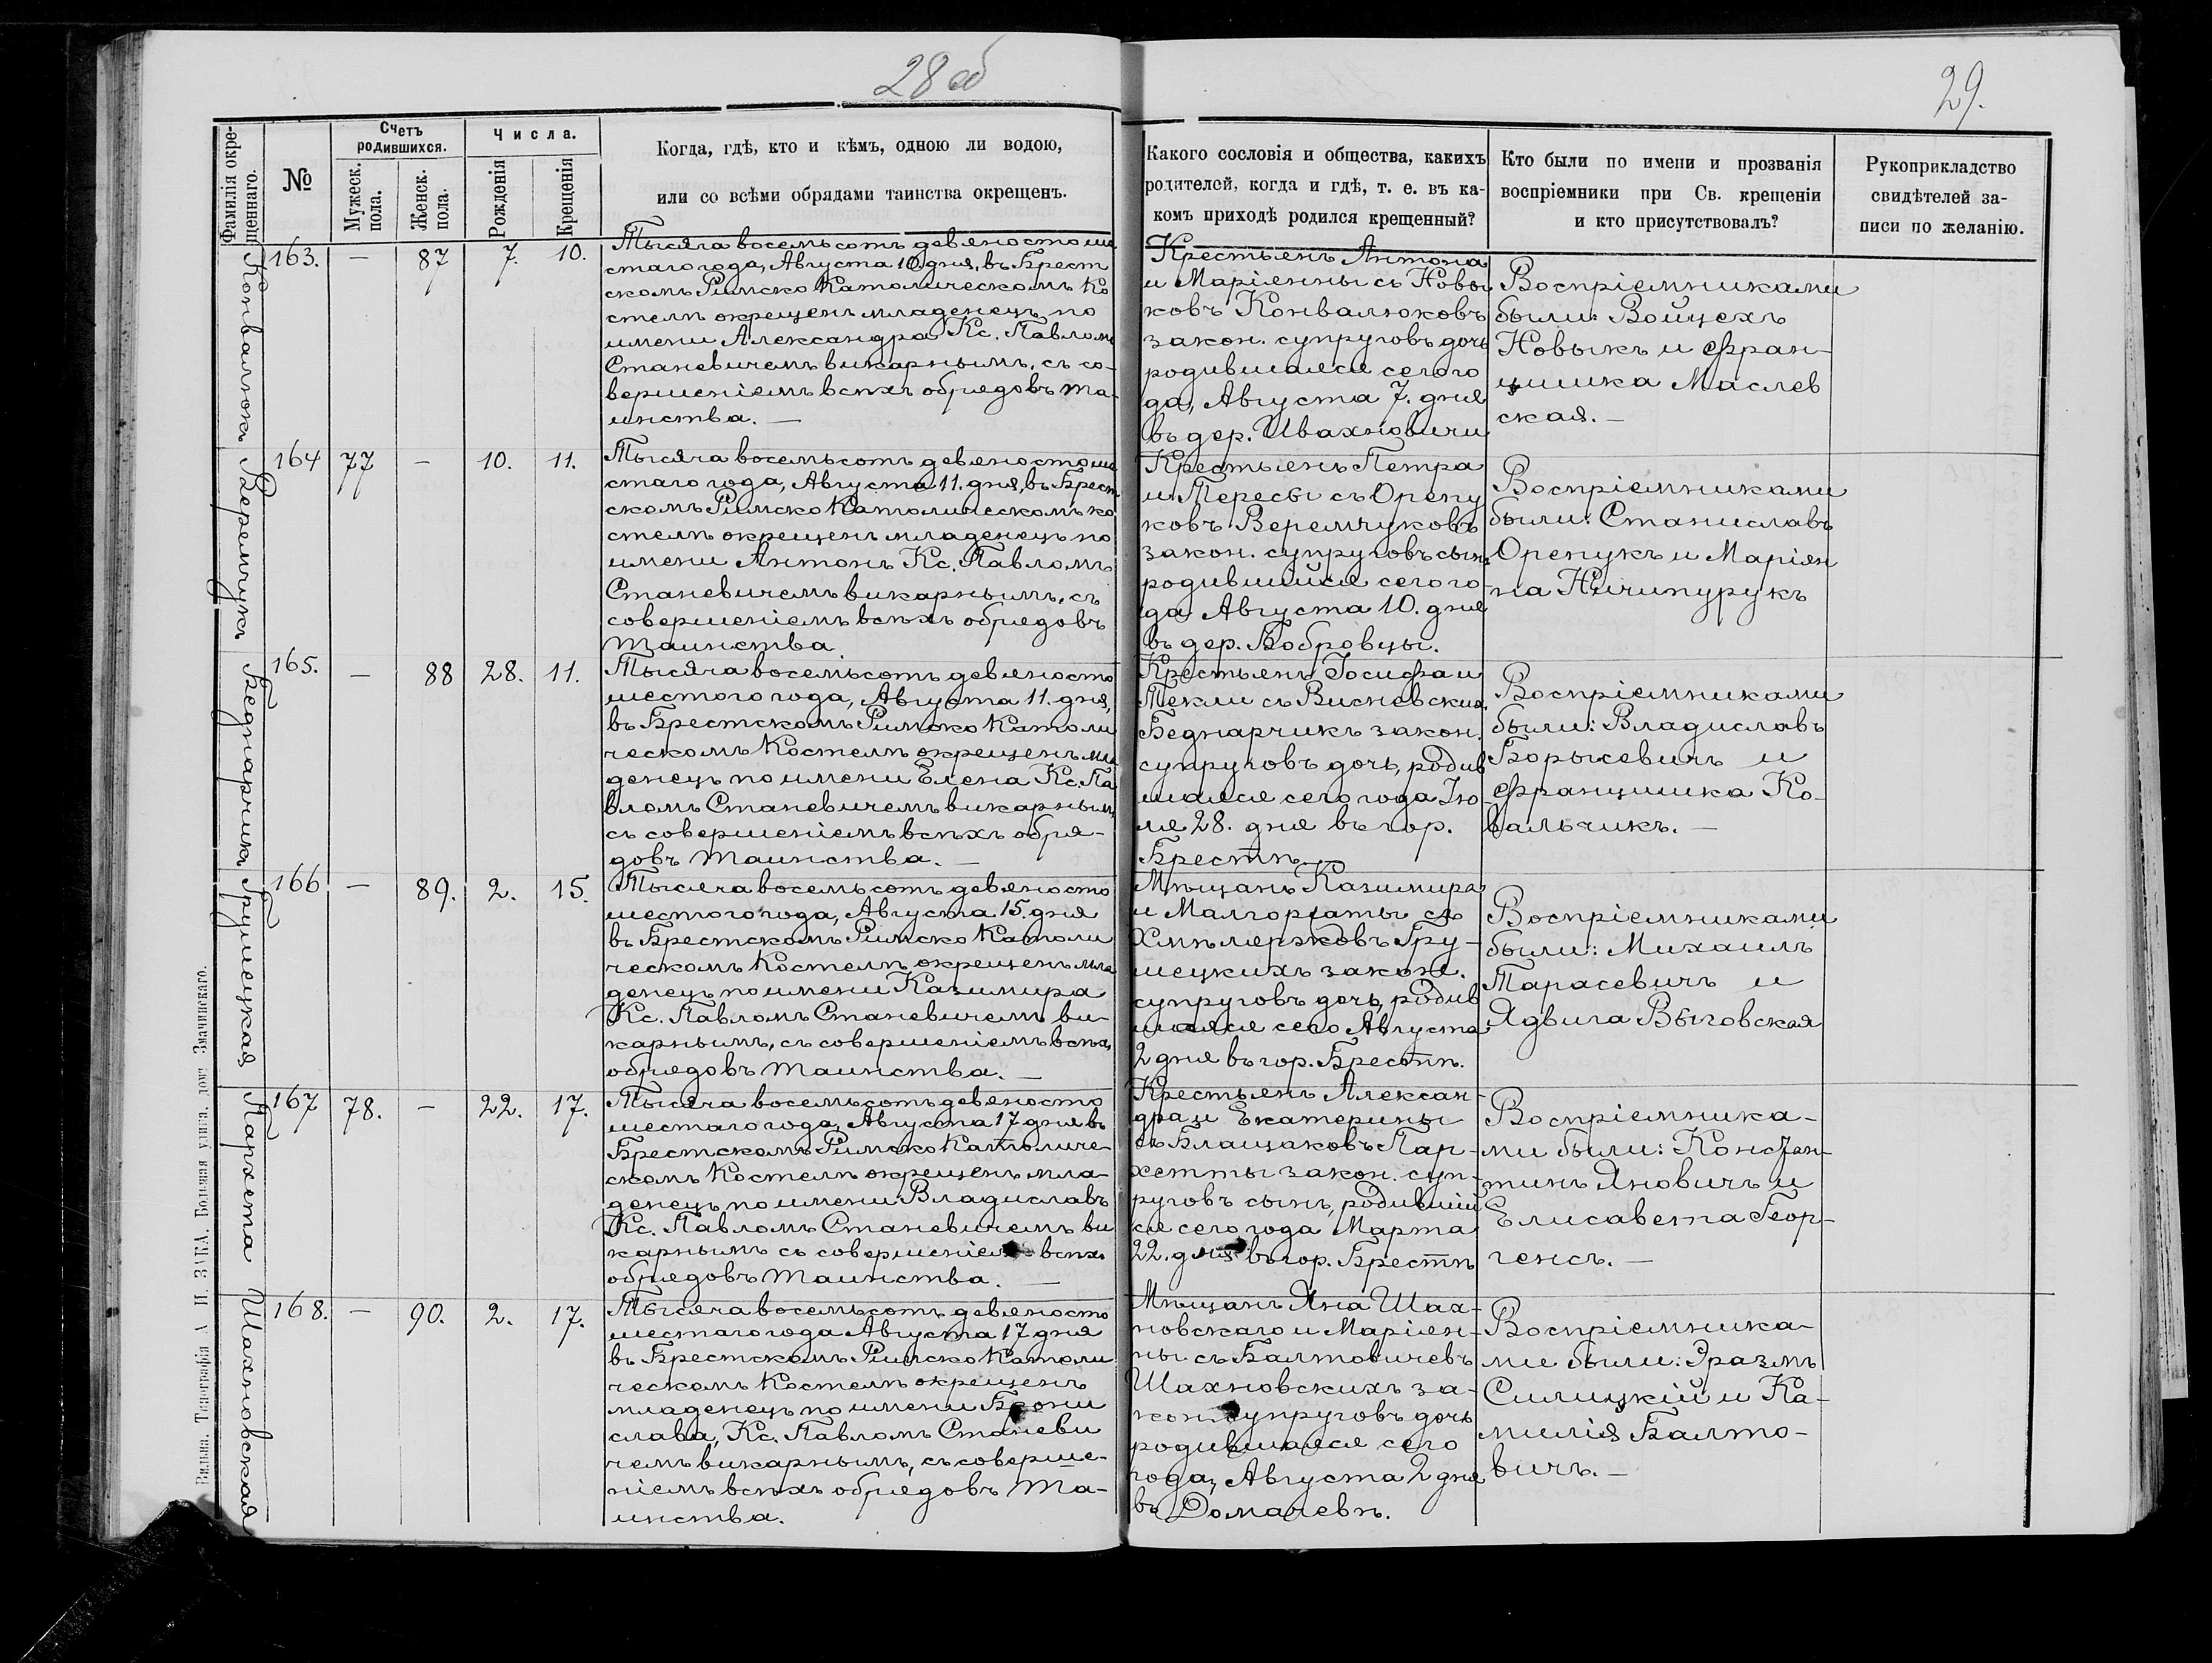 28 об
29.
Фамилія окре-
щеннаго.
№
Счетъ
родившихся.
Мужеск.
пола.
Женск.
пола.
Числа.
Рожденія
Крещенія
Когда, гдѣ, кто и кѣмъ, одною ли водою,
или со всѣми обрядами таинства окрещенъ.
Какого сословія и общества, какихъ
родителей, когда и гдѣ, т. е. въ ка-
комъ приходѣ родился крещенный?
Кто были по имени и прозванія
воспріемники при Св. крещеніи
и кто присутствовалъ?
Рукоприкладство
свидѣтелей за-
писи по желанію.
Конвалюкъ
163.
—
87
7.
10.
Тысяча восемьсотъ девяносто ше
стаго года, Августа 10 дня, въ Брест
скомъ Римско Католическомъ Ко
стелѣ окрещенъ младенецъ по
имени Александра Кс. Павломъ
Станевичемъ викарнымъ, съ со-
вершеніемъ всѣхъ обрядовъ та-
инства. —
Крестьянъ Антона
и Маріянны съ Новы
ковъ Конвалюковъ
закон. супруговъ дочь
родившаяся сего го
да, Августа 7. дня
въ дер. Ивахновичи
Воспріемниками
были: Войцехъ
Новыкъ и Фран-
цишка Маслев
ская. —
Веремчукъ
164
77
—
10.
11.
Тысяча восемьсотъ девяносто ше
стаго года, Августа 11. дня, въ Брест
скомъ Римско Католическомъ ко
стелѣ окрещенъ младенецъ по
имени Антонъ Кс. Павломъ
Станевичемъ викарнымъ, съ
совершеніемъ всѣхъ обрядовъ
таинства.
Крестьянъ Петра
и Тересы съ Орепу
ковъ Веремчуковъ
закон. супруговъ сынъ
родившійся сего го-
да Августа 10. дня
въ дер. Бобровцы.
Воспріемниками
были: Станиславъ
Орепукъ и Маріян
на Ничипурукъ
Беднарчикъ
165.
—
88
28.
11.
Тысяча восемьсотъ девяносто
шестого года, Августа 11. дня,
въ Брестскомъ Римско Католи
ческомъ Костелѣ окрещенъ мла
денецъ по имени Елена Кс. Па
вломъ Станевичемъ викарнымъ
съ совершеніемъ всѣхъ обря-
довъ таинства. —
Крестьянъ Іосифа и
Текли съ Висневскихъ
Беднарчикъ закон.
супруговъ дочь, родив
шаяся сего года Ію-
ля 28. дня въ гор.
Брестѣ. —
Воспріемниками
были: Владиславъ
Борысевичъ и
Францишка Ко-
вальчикъ. —
Грушецкая
166
—
89.
2.
15.
Тысяча восемьсотъ девяносто
шестого года, Августа 15. дня
въ Брестскомъ Римско Католи
ческомъ Костелѣ окрещенъ мла
денецъ по имени Казимира
Кс. Павломъ Станевичемъ ви-
карнымъ, съ совершеніемъ всѣхъ
обрядовъ таинства. —
Мѣщанъ Казимира
и Малгоржаты съ
Хмѣлержовъ Гру-
шецкихъ закон.
супруговъ дочь, родив
шаяся сего Августа
2 дня въ гор. Брестѣ.
Воспріемниками
были: Михаилъ
Тарасевичъ и
Ядвига Выговская
Пархета
167
78.
—
22.
17.
Тысяча восемьсотъ девяносто
шестаго года, Августа 17 дня въ
Брестскомъ Римско Католиче-
скомъ Костелѣ окрещенъ мла-
денецъ по имени Владиславъ
Кс. Павломъ Станевичемъ ви
карнымъ съ совершеніемъ всѣхъ
обрядовъ таинства. —
Крестьянъ Алексан-
дра и Екатерины
съ Блащаковъ Пар-
хетты закон. суп-
руговъ сынъ, родившій
ся сего года Марта
22. дня въ гор. Брестѣ
Воспріемника-
ми были: Констан-
тинъ Яновичъ и
Елисавета Геор-
генсъ. —
Шахновская
168.
—
90.
2.
17.
Тысяча восемьсотъ девяносто
шестаго года Августа 17 дня
въ Брестскомъ Римско Католи
ческомъ Костелѣ окрещенъ
младенецъ по имени Брони
слава, Кс. Павломъ Станеви
чемъ викарнымъ, съ соверше-
ніемъ всѣхъ обрядовъ та-
инства.
Мѣщанъ Яна Шах-
новскаго и Маріян-
ны съ Балтовичевъ
Шахновскихъ за-
кон. супруговъ дочь
родившаяся сего
года, Августа 2 дня
въ Домачевѣ.
Воспріемника-
ми были: Эразмъ
Силицкій и Ка-
милія Балто-
вичъ. —
Вильна. Типографія А. И. ЗАКА. Большая улица, домъ Змачинскаго.